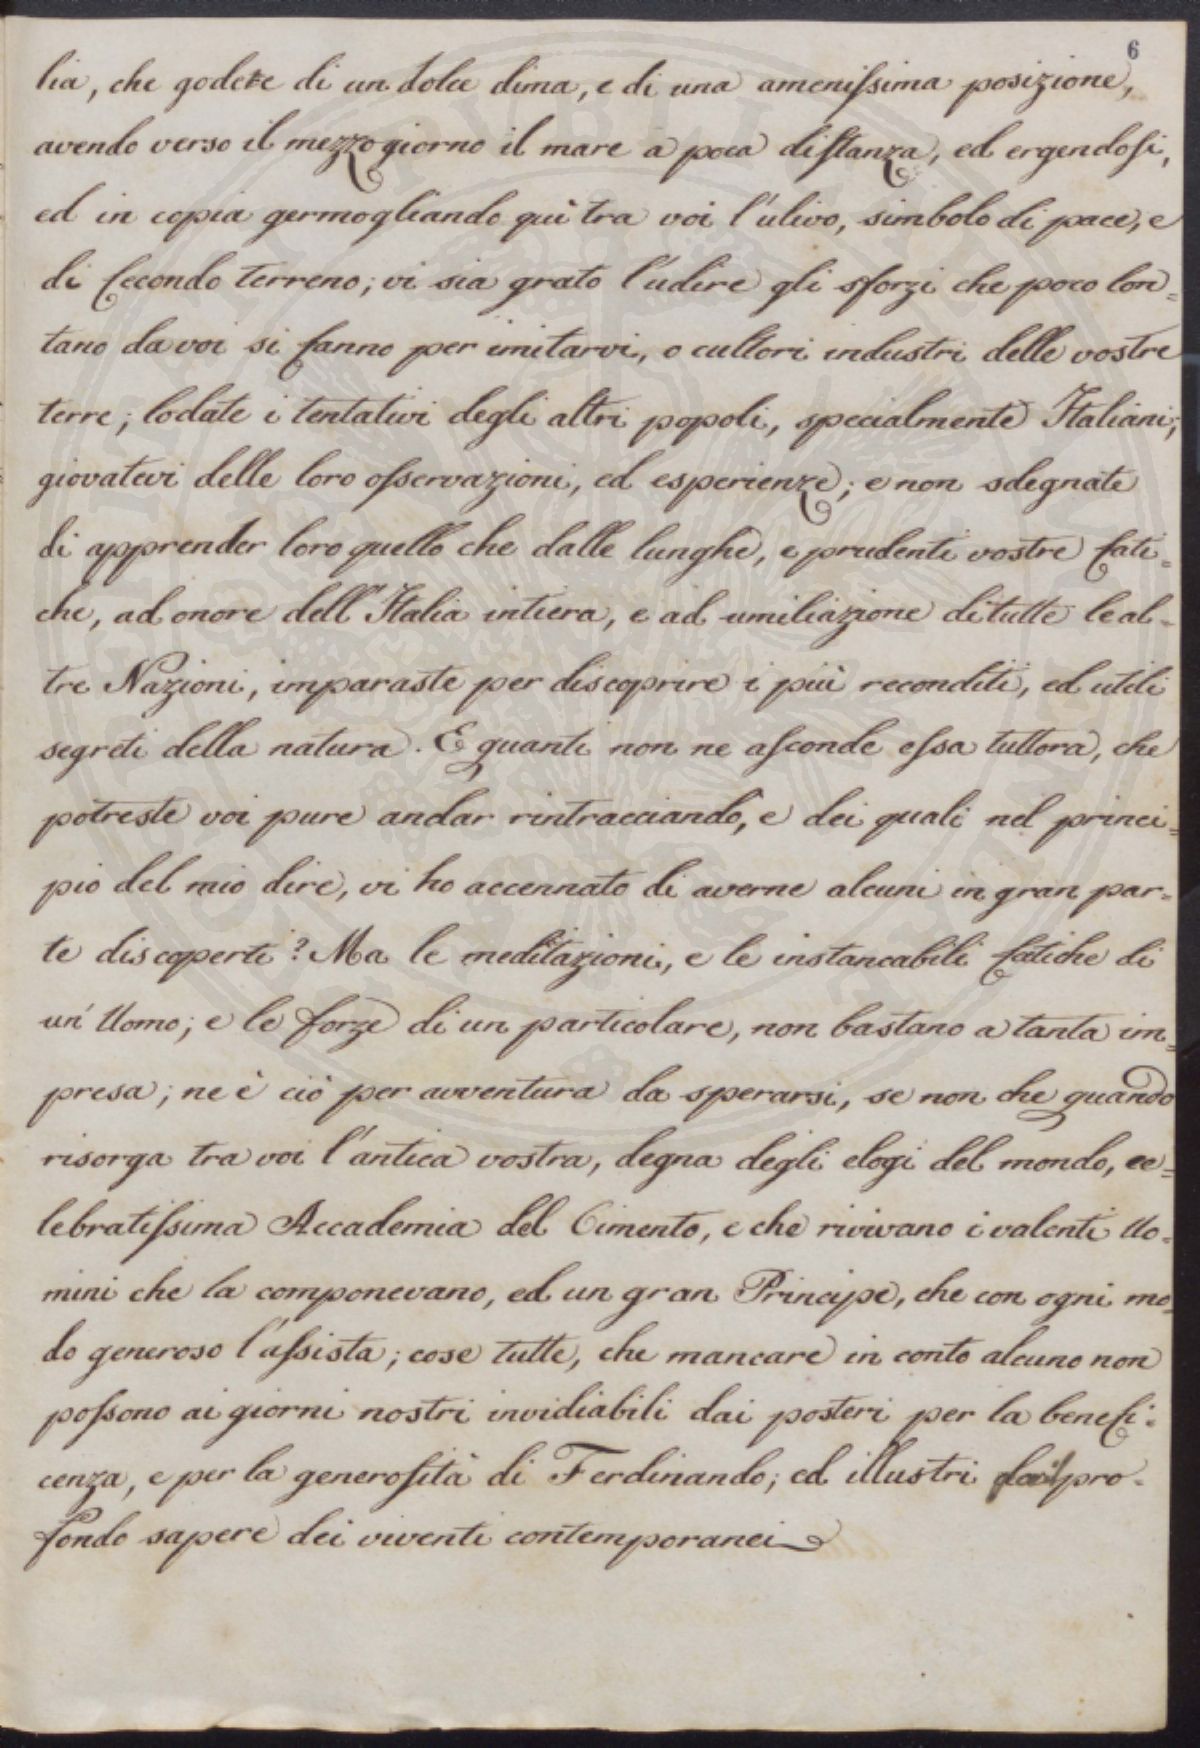 6
lia, che godete di un dolce clima, e di una amenissima posizione,
avendo verso il mezzogiorno il mare a poca distanza, ed ergendosi,
ed in copia germogliando quì tra voi l'ulivo, simbolo di pace, e
di fecondo terreno; vi sia grato l'udire gli sforzi che poco lon=
tano da voi si fanno per imitarvi, o cultori industri delle vostre
terre; lodate i tentativi degli altri popoli, specialmente Italiani;
giovatevi delle loro osservazioni, ed esperienze; e non sdegnate
di apprender loro quello che dalle lunghe, e prudenti vostre fati=
che, ad onore dell'Italia intiera, e ad umiliazione di tutte le al=
tre Nazioni, imparaste per discoprire i più reconditi, ed utili
segreti della natura. E quanti non ne asconde essa tuttora, che
potreste voi pure andar rintracciando, e dei quali nel princi=
pio del mio dire, vi ho accennato di averne alcuni in gran par=
te discoperti? Ma le meditazioni, e le instancabili fatiche di
un' Uomo; e le forze di un particolare, non bastano a tanta im=
presa; ne è ciò per avventura da sperarsi, se non che quando
risorga tra voi l'antica vostra, degna degli elogi del mondo, ce=
lebratissima Accademia del Cimento, e che rivivano i valenti Uo=
mini che la componevano, ed un gran Principe, che con ogni mo=
do generoso l'assista; cose tutte, che mancare in conto alcuno non
possono ai giorni nostri invidiabili dai posteri per la benefi=
cenza, e per la generosità di Ferdinando; ed illustri pel pro=
fondo sapere dei viventi contemporanei